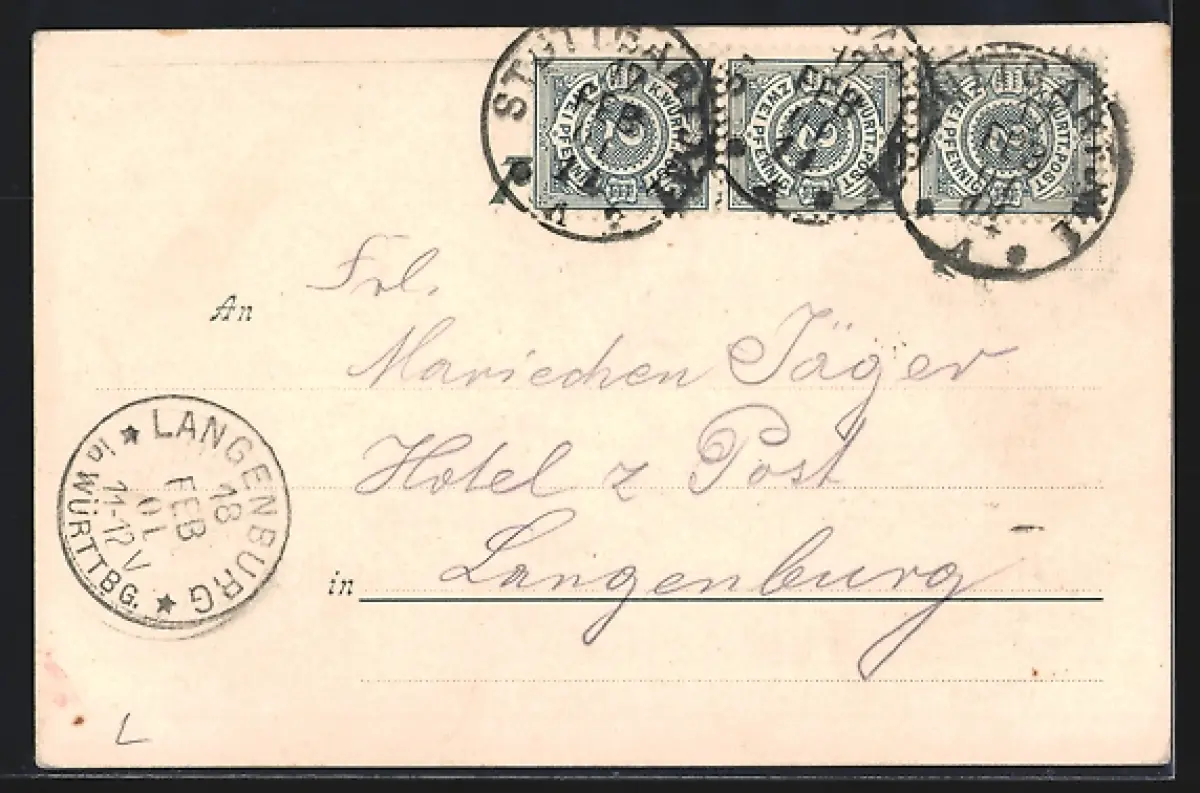 STUTTGART
17
FEB
K. WÜRTT. POST
ZWEI PFENNIG
2
17
FEB
K. WÜRTT. POST
ZWEI PFENNIG
2
K. WÜRTT. POST
ZWEI PFENNIG
Frl.
An
Mariechen Jäger
Hotel z Post
in Langenburg
LANGENBURG
18
FEB
01
11-12 V
IN WÜRTTBG.
L